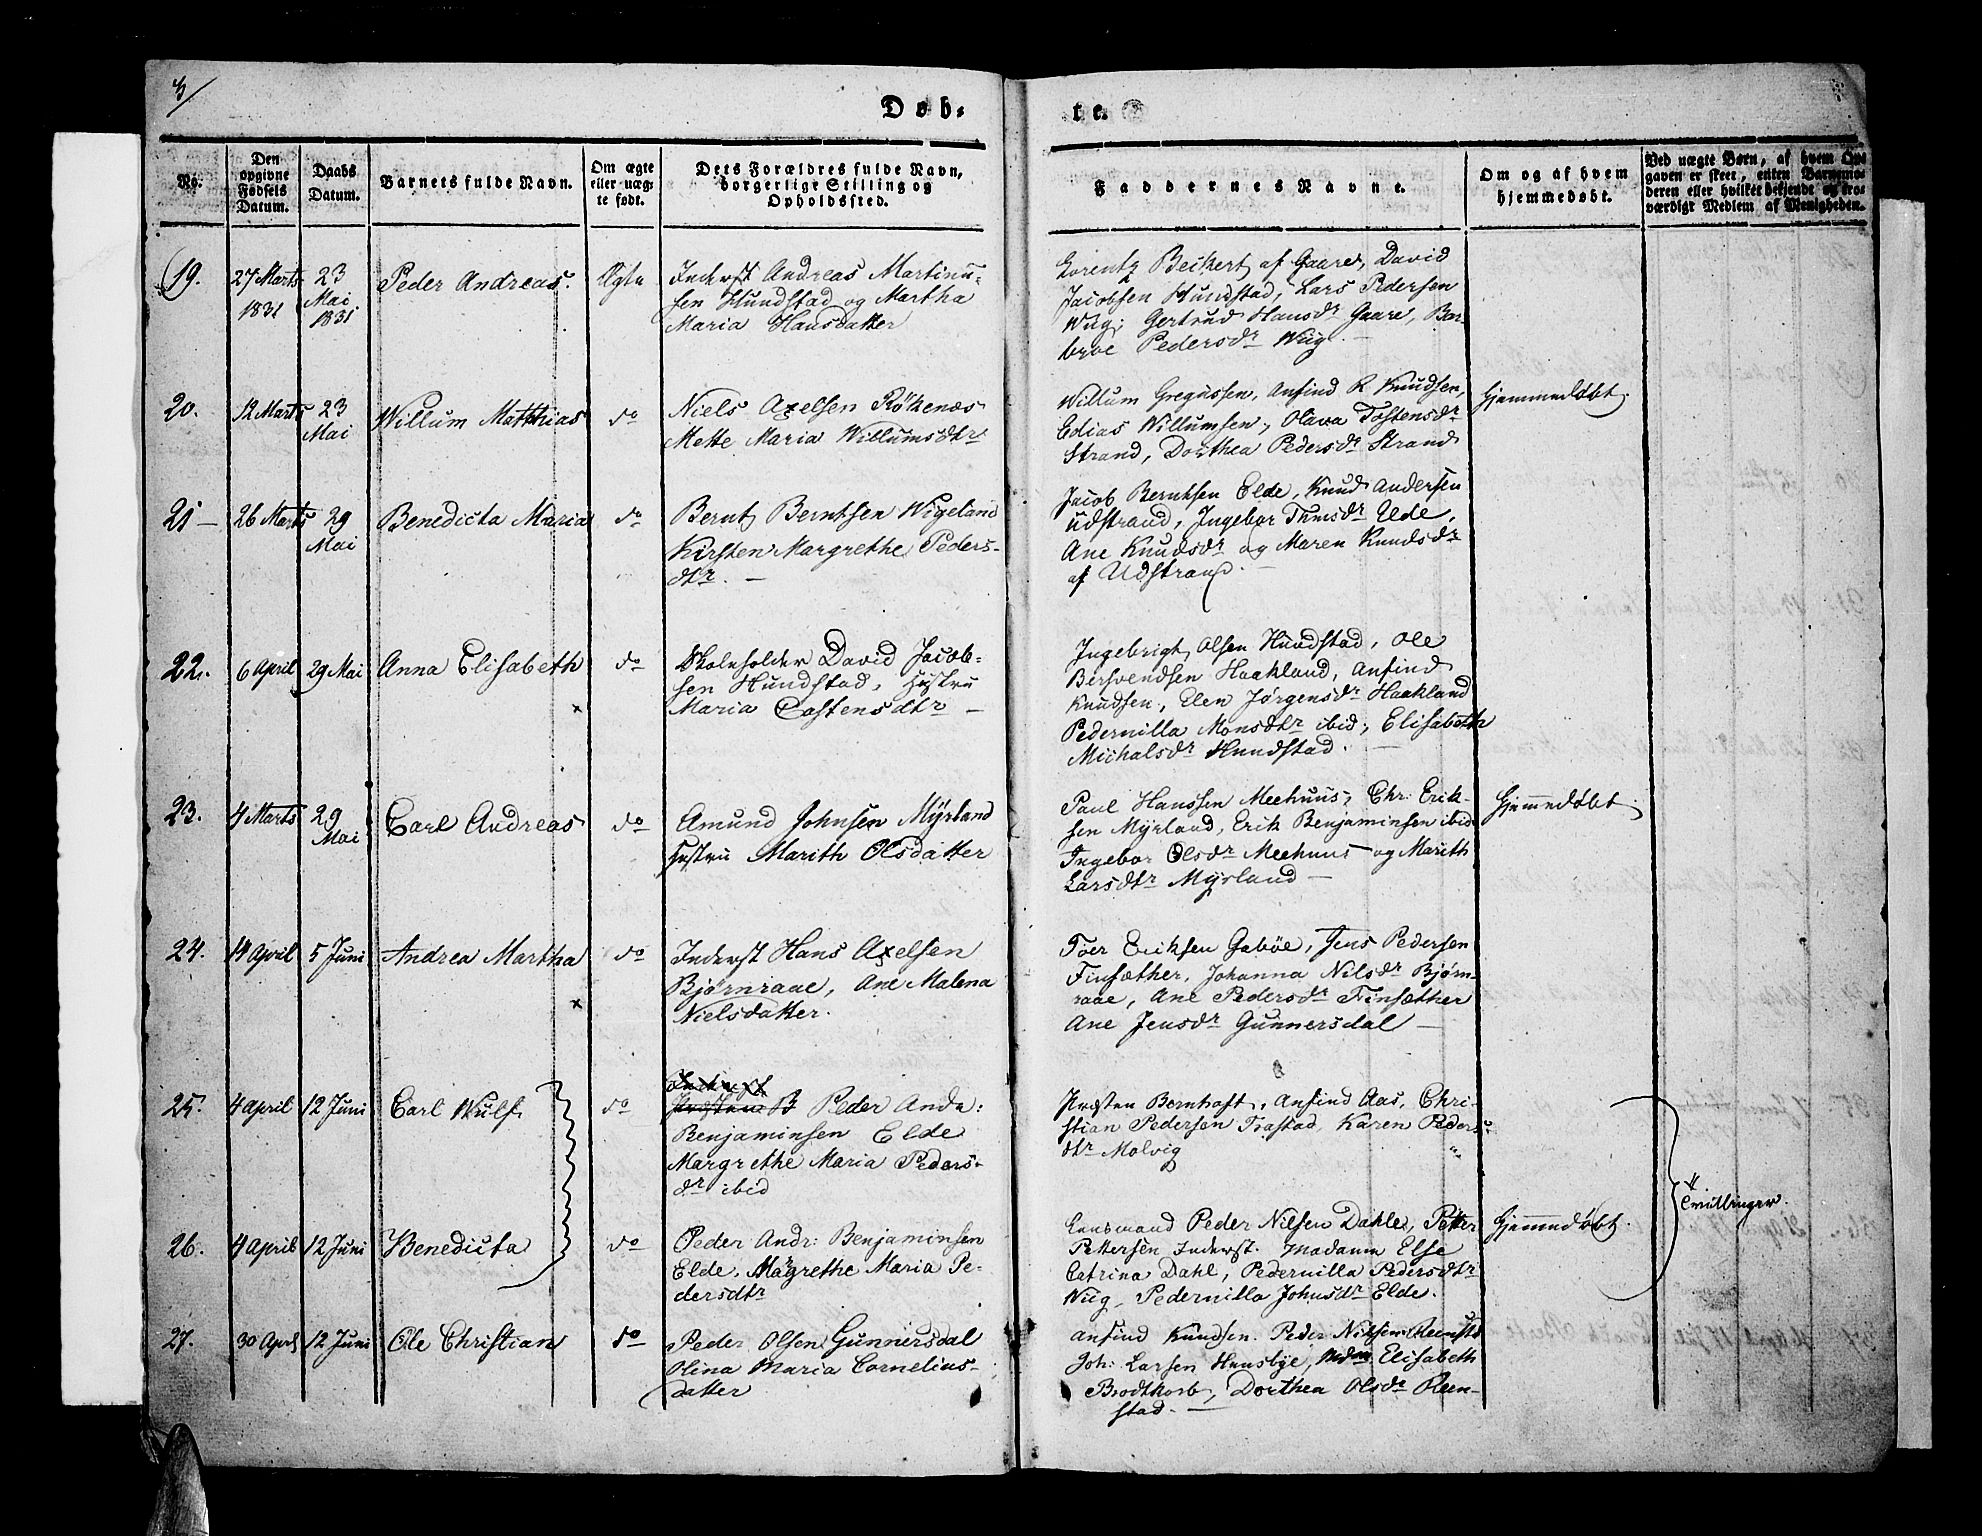 3/
Døb-
te.
No.
Den
opgivne
Fødsels
Datum.
Daabs
Datum.
Barnets fulde Navn.
Om ægte
eller uæg-
te født.
Dets Forældres fulde Navn,
borgerlige Stilling og
Opholdssted.
Faddernes Navne.
Om og af hvem
hjemmedøbt.
Ved uægte Børn, af hvem Op-
gaven er skeet, enten Barnemo-
deren eller hvilket bekjendt og tro-
værdigt Medlem af Menigheden.
19.
27 Marts
1831
23
Mai
1831
Peder Andreas.
Ægte
Inderst Andreas Martinu-
sen Hundstad og Martha
Maria Hansdatter
Lorentz Beckert af Gaare, David
Jacobsen Hundstad, Lars Pedersen
Wiig, Gertrud Hansdr Gaare, Bar-
broe Pedersdr Wiig. —
20.
12 Marts
23
Mai
Willum Matthias
do
Niels Axelsen Rökenæs
Mette Maria Willumsdtr
Willum Gregussen, Anfind R Knudsen,
Edias Willumsen, Olava Tostensdr
Strand, Dorthea Pedersdr Strand
Hjemmedøbt.
21 —
26 Marts
29
Mai
Benedicta Maria
do
Bernt Berntsen Wigeland
Kirsten Margrethe Peders-
dtr. —
Jacob Berntsen Elde, Knud Andersen
Udstrand, Ingebor Thmsdr Elde,
Ane Knudsdr og Maren Knudsdr
af Udstrand. —
22.
6 April
29 Mai
Anna Elisabeth
do
Skoleholder David Jacob-
sen Hundstad, Hustru
Maria Tostensdtr —
Ingebrigt Olsen Hundstad, Ole
Bersvendsen Haakland, Anfind
Knudsen, Elen Jørgensdr Haakland
Pedernilla Monsdtr ibid, Elisabeth
Michalsdr Hundstad. —
23.
4 Marts
29
Mai
Carl Andreas
do
Amund Johnsen Mÿrland
Hustru Marith Olsdatter
Paul Hanssen Meehuus, Chr: Erik-
sen Mÿrland, Erik Benjaminsen ibid
Ingebor Olsdr Meehuus og Marith
Larsdtr Mÿrland —
Hjemmedøbt
24.
14 April
5 Juni
Andrea Martha
do
Inderst Hans Axelsen
Bjørnraae, Ane Malena
Nielsdatter.
Toer Eriksen Gabøe, Jens Pedersen
Finsæther, Johanna Nilsdr Bjørn-
raae, Ane Pedersdr Finsæther
Ane Jensdr Gunnersdal —
25.
4 April
12 Juni
Carl Wulf
do
Inderst
Præsten B Peder Andr:
Benjaminsen Elde
Margrethe Maria Peders-
dr ibid
Præsten Bernhoft, Anfind Aas, Chri-
stian Pedersen Trastad, Karen Peders-
dtr Molvig
Tvillinger.
26.
4 April
12 Juni
Benedicta
do
Peder Andr: Benjaminsen
Elde, Margrethe Maria Pe-
dersdtr
Lensmand Peder Nilsen Dahle, Petter
Pettersen Inderst. Madame Else
Catrina Dahl, Pedernilla Pedersdtr
Wiig, Pedernilla Johnsdr Elde.
Hjemmedøbt.
27.
30 April
12 Juni
Ole Christian
do
Peder Olsen Gunnersdal
Olina Maria Cornelius-
datter
Anfind Knudsen. Peder Nilsen Reenstd
Joh: Larsen Huusbye, Mdme Elisabeth
Brodtkorb, Dorthea Olsdr Reen-
stad. —